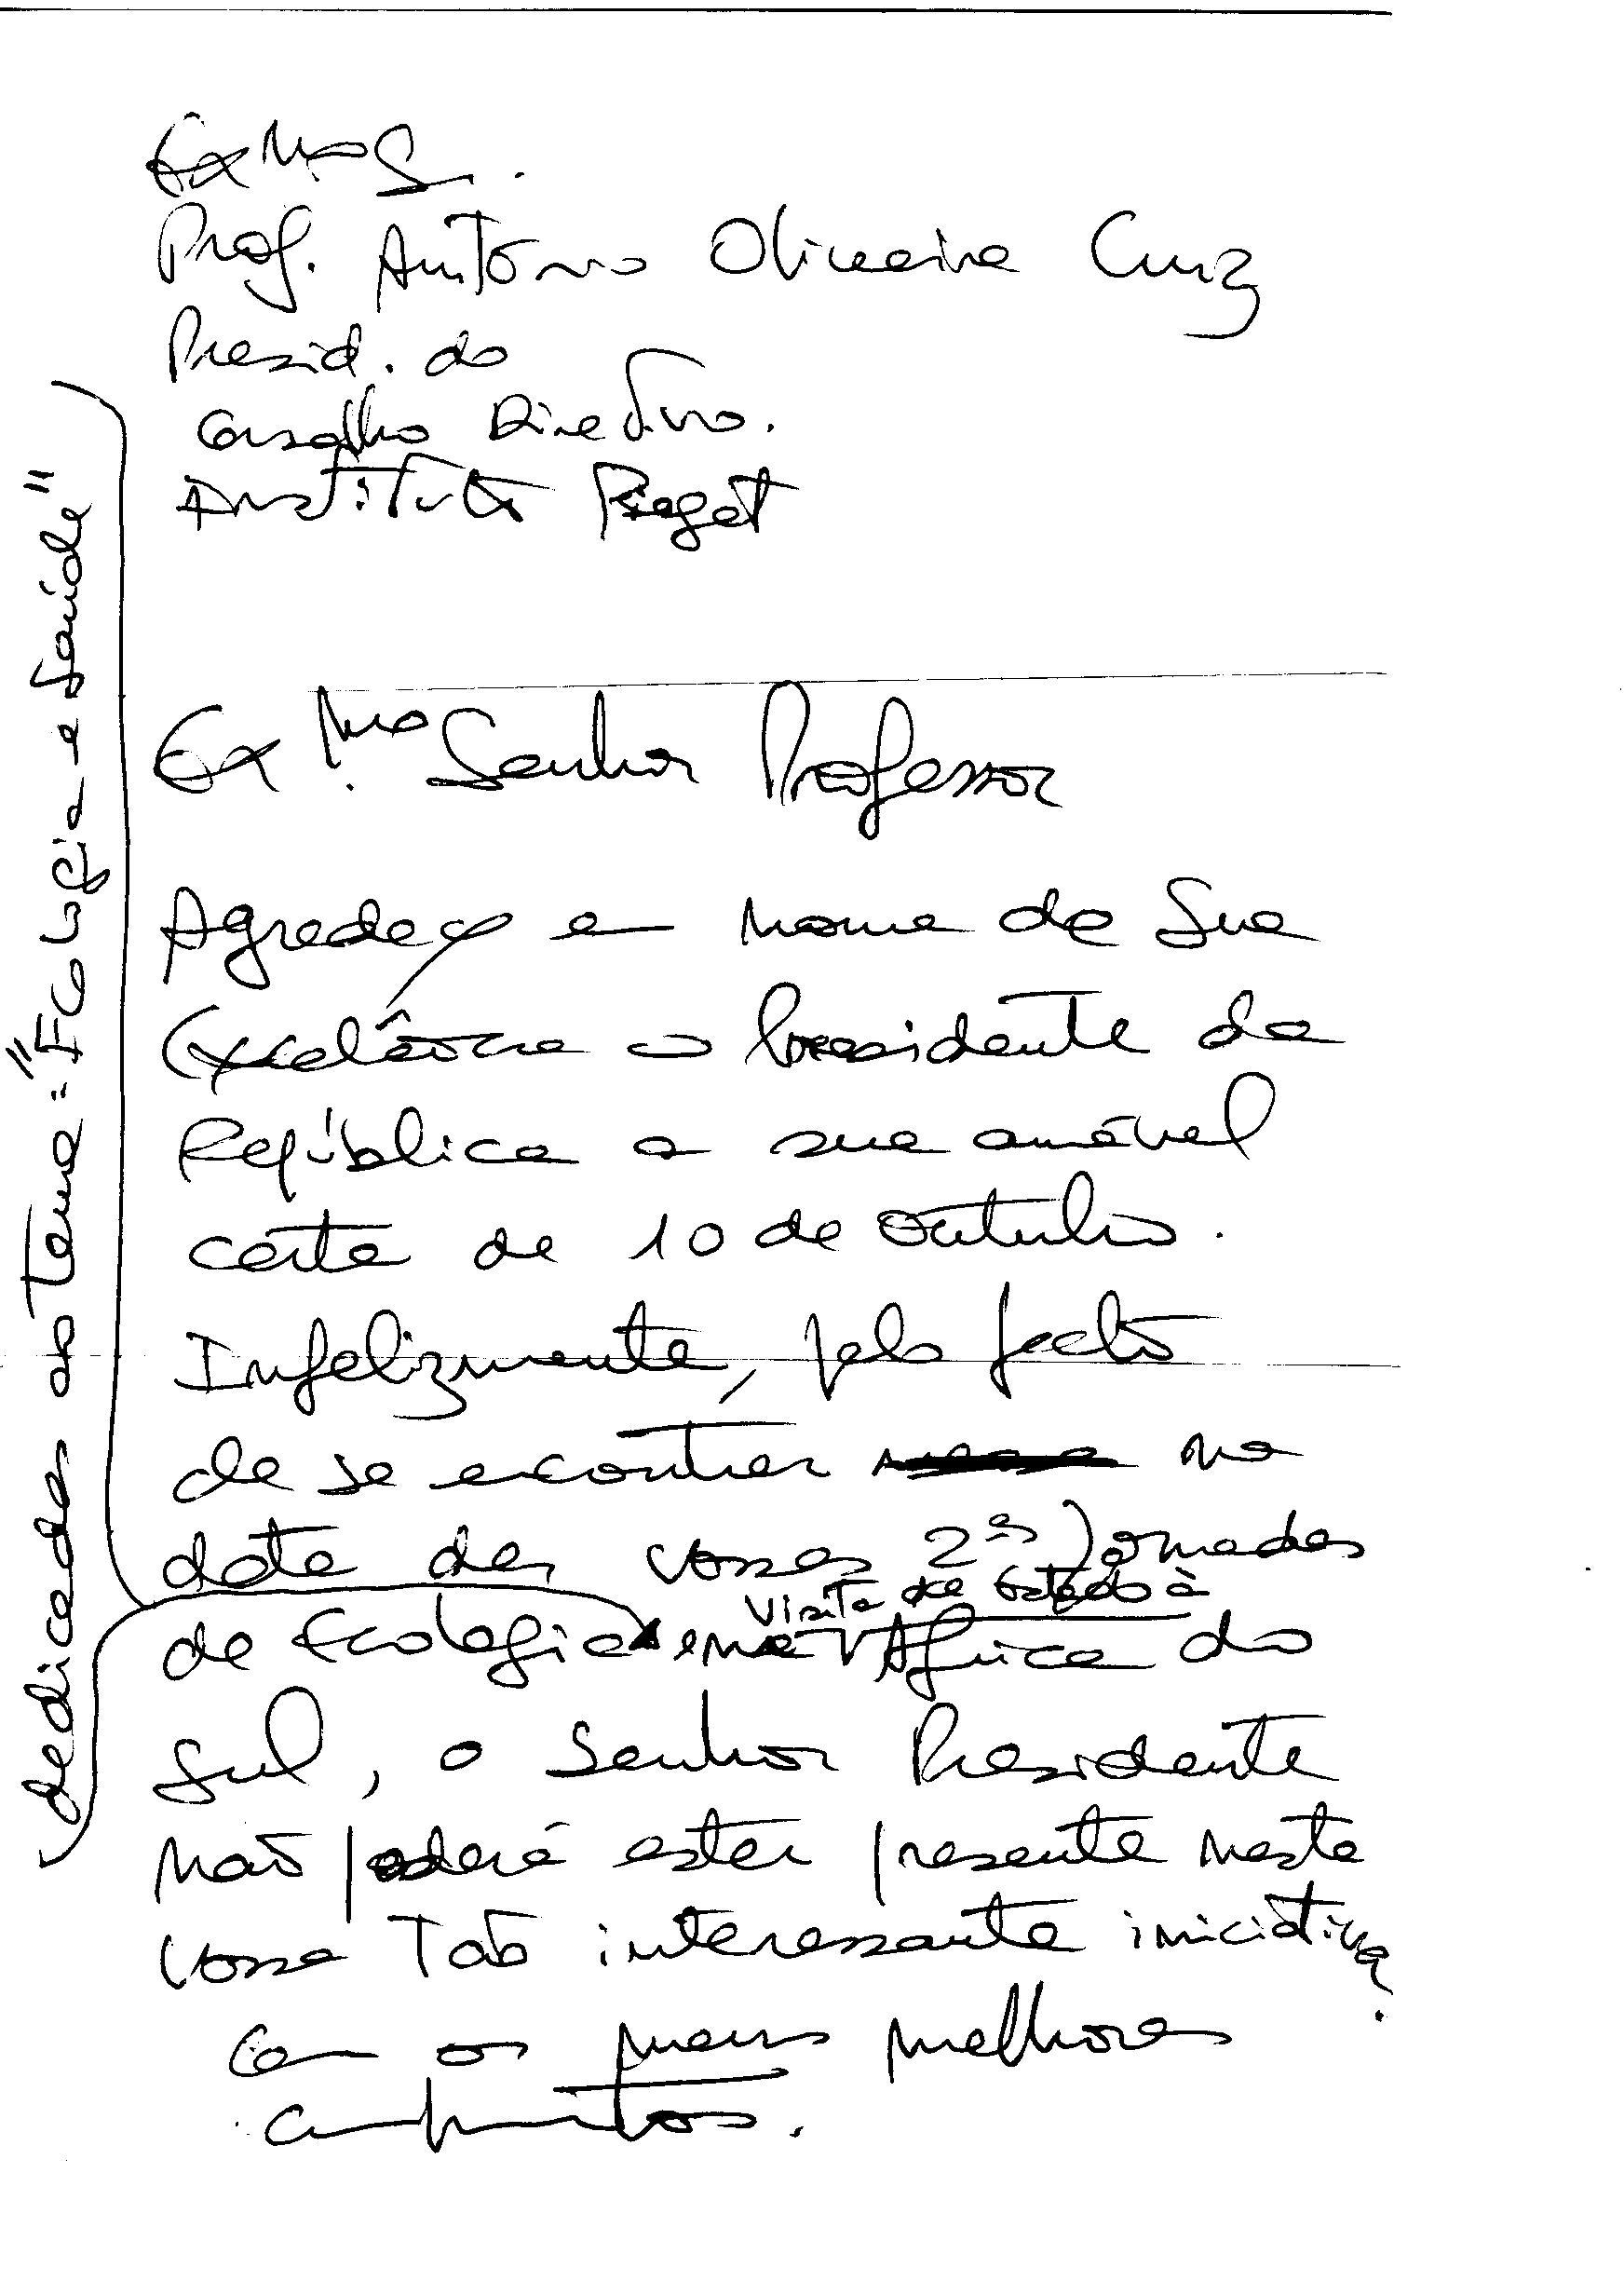 Exmo S.
Prof. António Oliveira Cruz
Presid. do
Conselho Directivo.
Instituto Piaget
Exmo Senhor Professor
Agradeço em nome de Sua
Excelência o Presidente da
República a sua amável
carta de 10 de Outubro.
Infelizmente, pelo facto
de se encontrar na
data das vossas 2as Jornadas
de Ecologia
dedicadas ao tema: "Ecologia e Saúde"
em visita de Estado à
África do
Sul, o Senhor Presidente
não poderá estar presente nesta
vossa tão interessante iniciativa.
Com os meus melhores
cumprimentos.